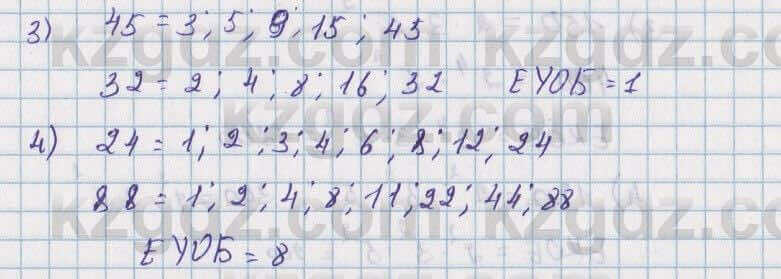 3) 45 = 3; 5; 9; 15; 45
32 = 2; 4; 8; 16; 32 ЕҮОБ = 1
4) 24 = 1; 2; 3; 4; 6; 8; 12; 24
88 = 1; 2; 4; 8; 11; 22; 44; 88
ЕҮОБ = 8
kzgdz.com